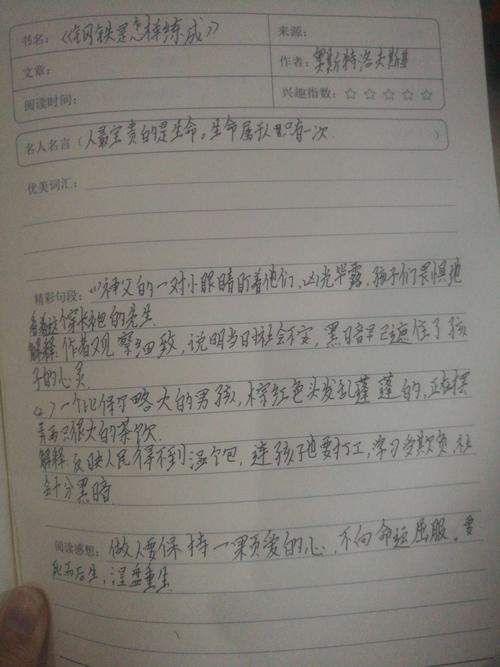 书名：《钢铁是怎样练成》
来源：
文章：
作者：奥斯特洛夫斯基
阅读时间：
兴趣指数：☆ ☆ ☆ ☆ ☆
名人名言（人最宝贵的是生命，生命属于人只有一次）
优美词汇：
精彩句段：(1)神父的一对小眼睛盯着他们，凶光毕露，孩子们畏惧地
看着这个穿长袍的先生
解释：作者观察细致，说明当日社会不安，黑暗早已遮住了孩
子的心灵
(2)一个比保尔略大的男孩，棕红色头发乱蓬蓬的，正在摆
弄两只很大的茶饮
解释 反映人民得不到温饱，连孩子也要打工，
会十分黑暗
阅读感想：做人要保持一颗爱的心，不向命运屈服。要
死而后生，涅盘重生